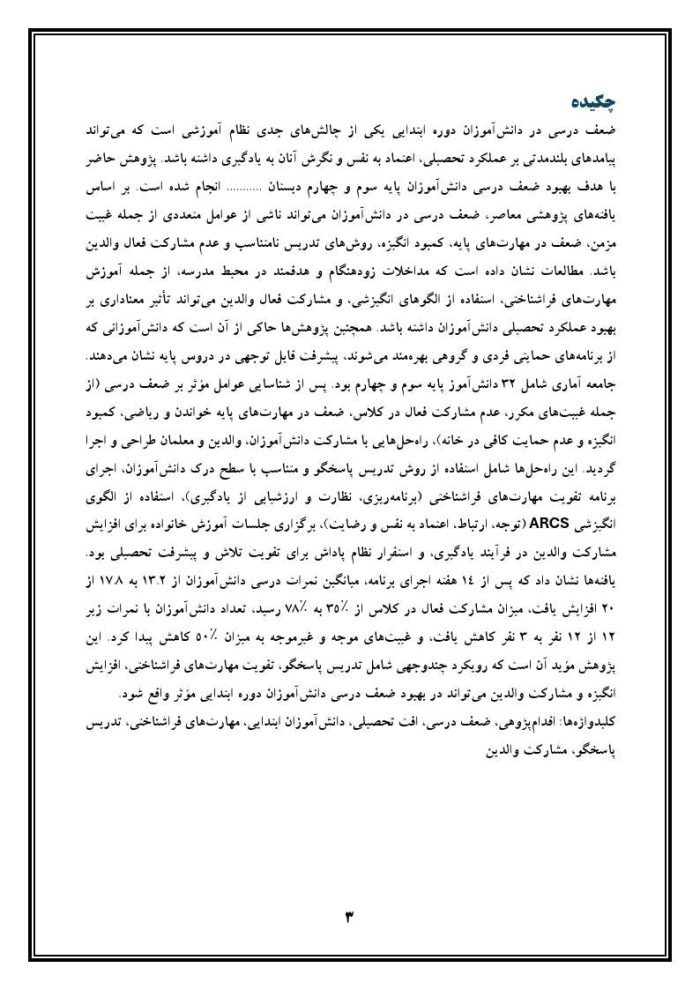 چکیده
ضعف درسی در دانش‌آموزان دوره ابتدایی یکی از چالش‌های جدی نظام آموزشی است که می‌تواند
پیامدهای بلندمدتی بر عملکرد تحصیلی، اعتماد به نفس و نگرش آنان به یادگیری داشته باشد. پژوهش حاضر
با هدف بهبود ضعف درسی دانش‌آموزان پایه سوم و چهارم دبستان ........... انجام شده است. بر اساس
یافته‌های پژوهشی معاصر، ضعف درسی در دانش‌آموزان می‌تواند ناشی از عوامل متعددی از جمله غیبت
مزمن، ضعف در مهارت‌های پایه، کمبود انگیزه، روش‌های تدریس نامتناسب و عدم مشارکت فعال والدین
باشد. مطالعات نشان داده است که مداخلات زودهنگام و هدفمند در محیط مدرسه، از جمله آموزش
مهارت‌های فراشناختی، استفاده از الگوهای انگیزشی، و مشارکت فعال والدین می‌تواند تأثیر معناداری بر
بهبود عملکرد تحصیلی دانش‌آموزان داشته باشد. همچنین پژوهش‌ها حاکی از آن است که دانش‌آموزانی که
از برنامه‌های حمایتی فردی و گروهی بهره‌مند می‌شوند، پیشرفت قابل توجهی در دروس پایه نشان می‌دهند.
جامعه آماری شامل ۳۲ دانش‌آموز پایه سوم و چهارم بود. پس از شناسایی عوامل مؤثر بر ضعف درسی (از
جمله غیبت‌های مکرر، عدم مشارکت فعال در کلاس، ضعف در مهارت‌های پایه خواندن و ریاضی، کمبود
انگیزه و عدم حمایت کافی در خانه)، راه‌حل‌هایی با مشارکت دانش‌آموزان، والدین و معلمان طراحی و اجرا
گردید. این راه‌حل‌ها شامل استفاده از روش تدریس پاسخگو و متناسب با سطح درک دانش‌آموزان، اجرای
برنامه تقویت مهارت‌های فراشناختی (برنامه‌ریزی، نظارت و ارزشیابی از یادگیری)، استفاده از الگوی
انگیزشی ARCS (توجه، ارتباط، اعتماد به نفس و رضایت)، برگزاری جلسات آموزش خانواده برای افزایش
مشارکت والدین در فرآیند یادگیری، و استقرار نظام پاداش برای تقویت تلاش و پیشرفت تحصیلی بود.
یافته‌ها نشان داد که پس از ۱۴ هفته اجرای برنامه، میانگین نمرات درسی دانش‌آموزان از ۱۳.۲ به ۱۷.۸ از
۲۰ افزایش یافت، میزان مشارکت فعال در کلاس از ۳۵٪ به ۷۸٪ رسید، تعداد دانش‌آموزان با نمرات زیر
۱۲ از ۱۲ نفر به ۳ نفر کاهش یافت، و غیبت‌های موجه و غیرموجه به میزان ۵۰٪ کاهش پیدا کرد. این
پژوهش مؤید آن است که رویکرد چندوجهی شامل تدریس پاسخگو، تقویت مهارت‌های فراشناختی، افزایش
انگیزه و مشارکت والدین می‌تواند در بهبود ضعف درسی دانش‌آموزان دوره ابتدایی مؤثر واقع شود.
کلیدواژه‌ها: اقدام‌پژوهی، ضعف درسی، افت تحصیلی، دانش‌آموزان ابتدایی، مهارت‌های فراشناختی، تدریس
پاسخگو، مشارکت والدین
۳